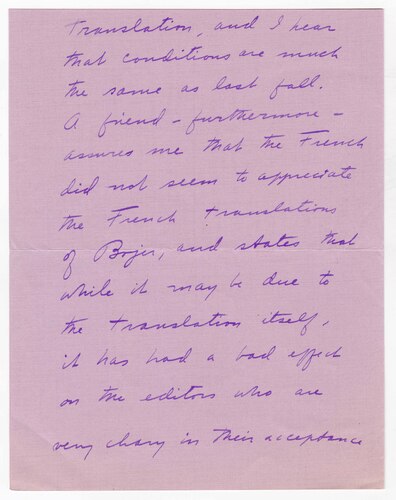 Translation, and I hear
that conditions are much
the same as last fall.
A friend - furthermore -
assures me that the French
did not seem to appreciate
the French translations
of Bojer, and states that
while it may be due to
the translation itself,
it has had a bad effect
on the editors who are
very chary in their acceptance